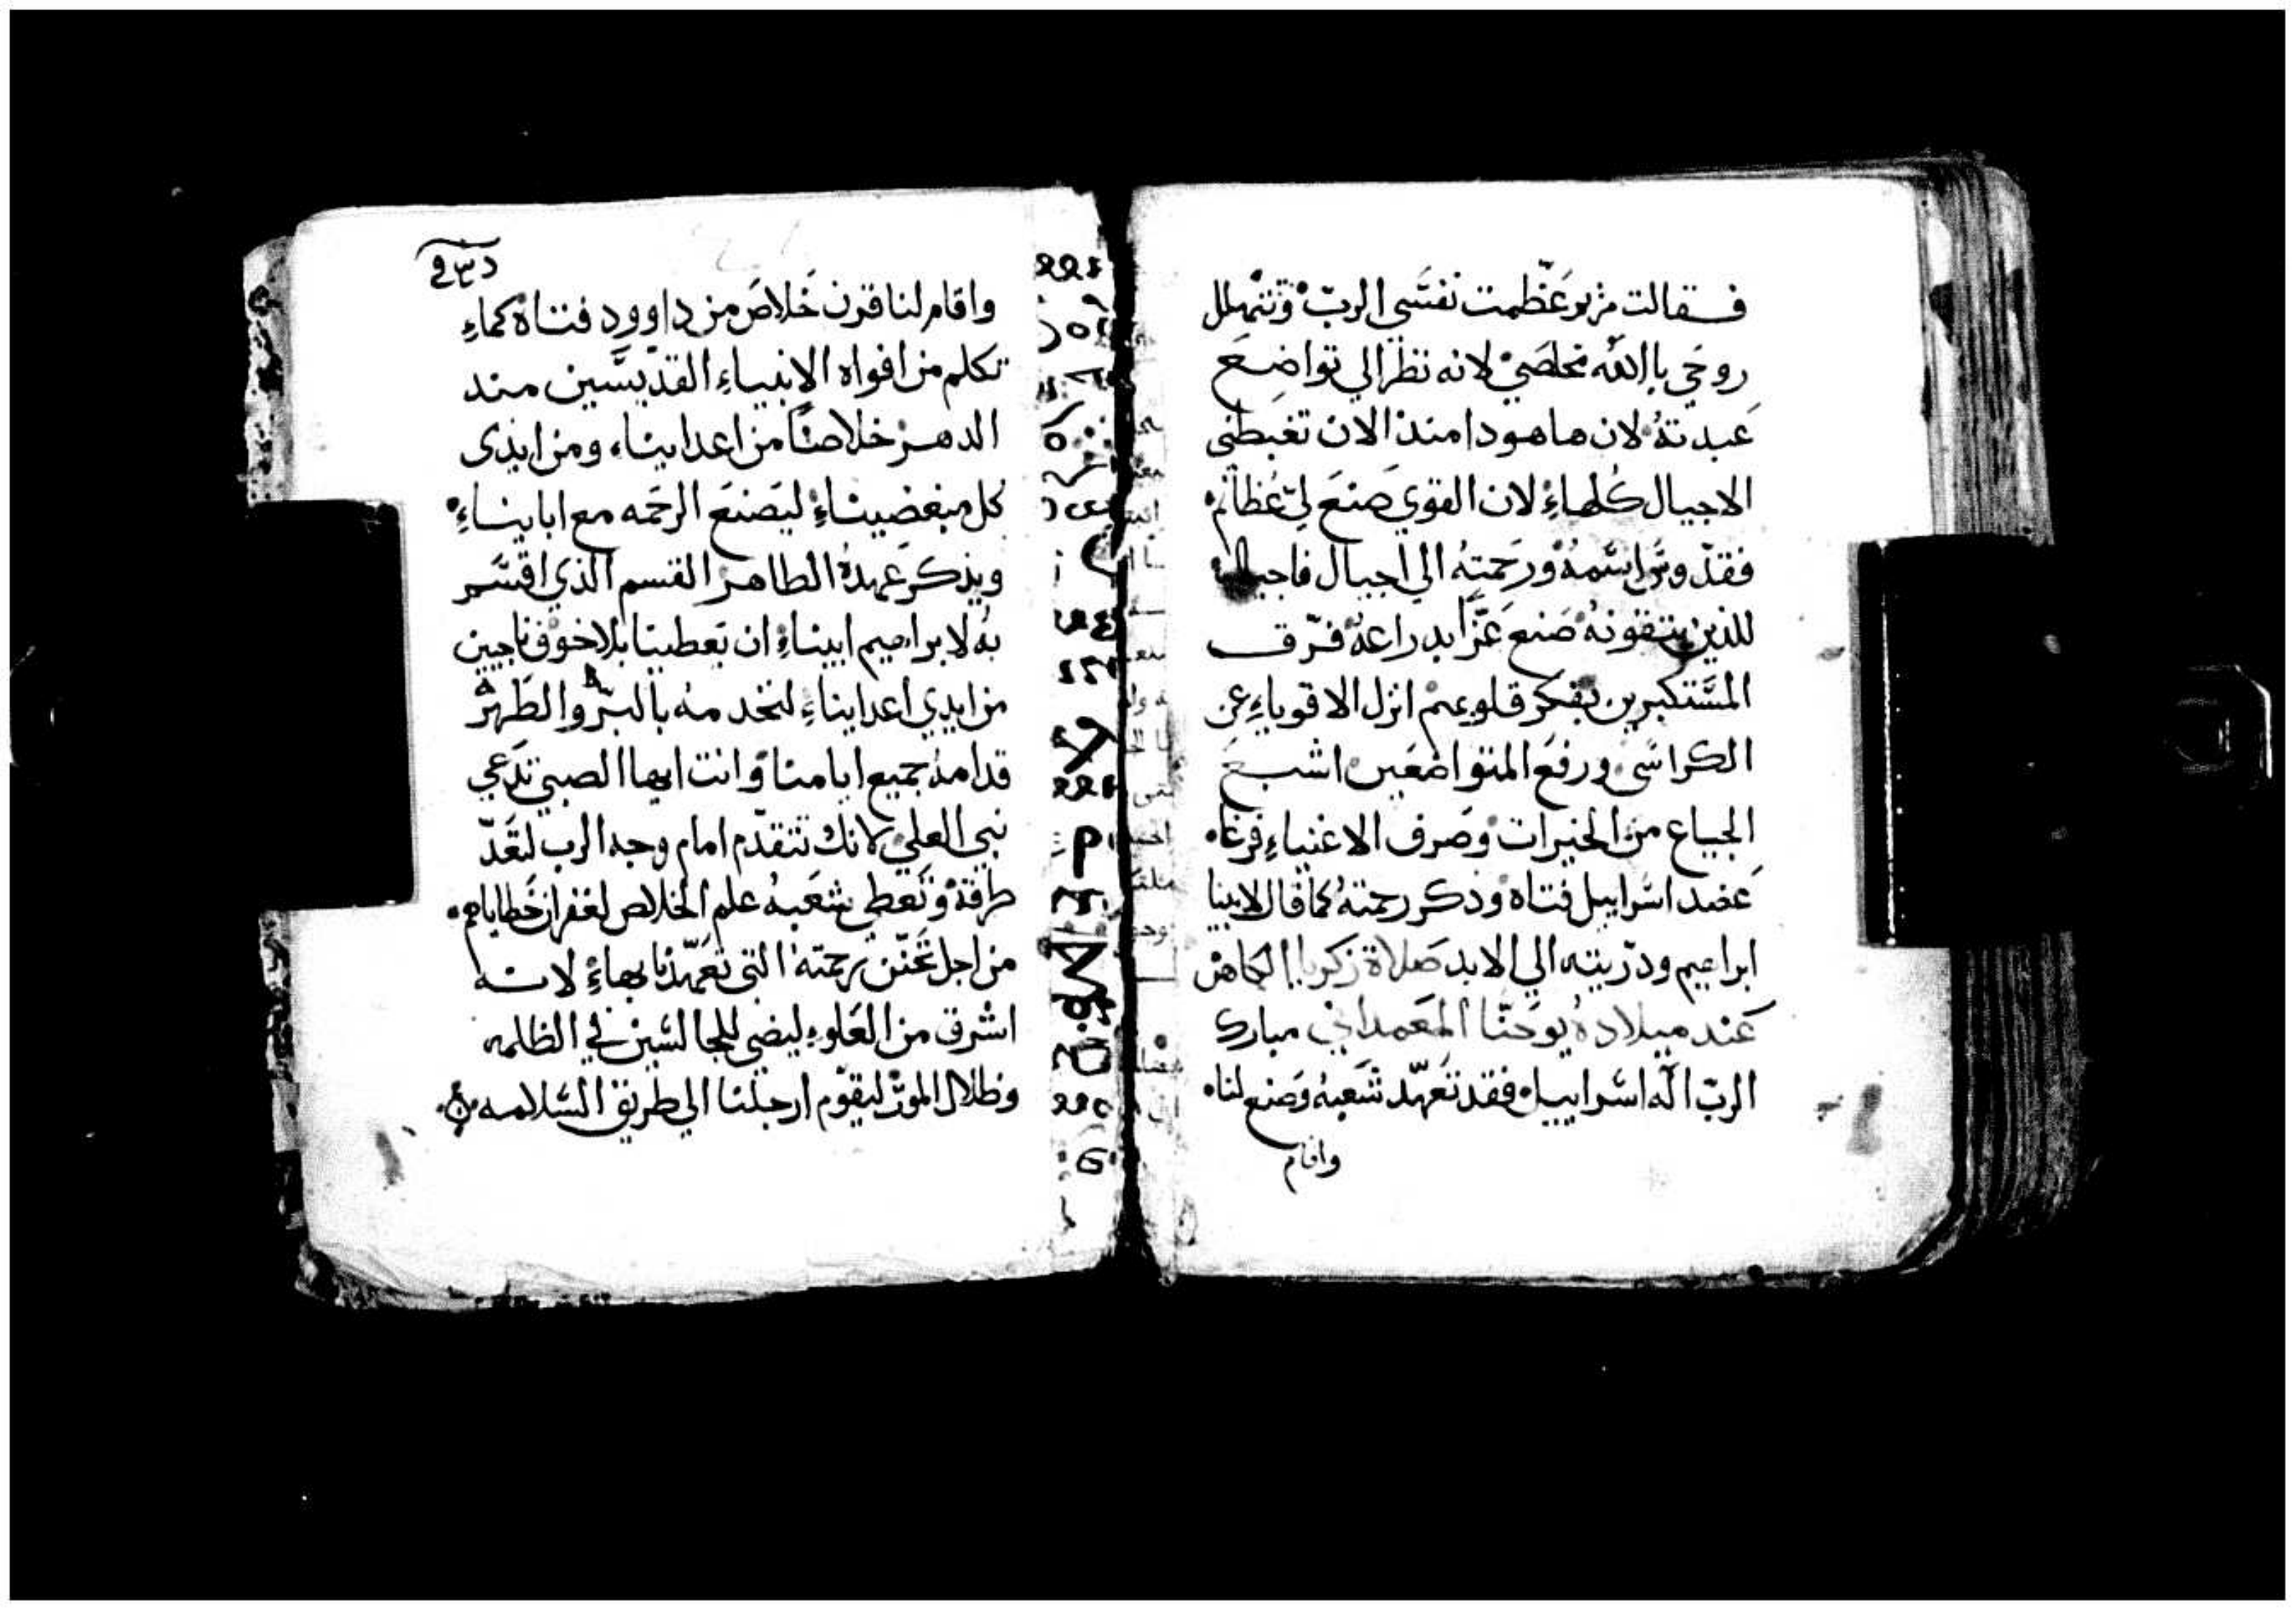 فقالت مريم عَظّمت نفسَي الربّ وَتتهلل
روحَي باالله مخلصَي لانه نظر الي تواضع
عَبدتهُ لان ها هودا مند الان تغبطني
الاجيال كُلهاءِ لان القوي صَنعَ لي عُظايم
فقدّوسٌ اسَمهُ ورَحمتِهُ الي اجيال فاجيال
للدين يتقونهُ صَنع عَزًا بدراعهُ فرّق
المسَتكبرين بفكر قلوبهم انزل الاقوياءِ عن
الكراسَي ورفعَ المتواضعَين اشبعَ
الجياع من الخيرات وصَرف الاغنياءِ فرغاء
عَضد اسَراييل فتاه ودكر رحمتهُ كما قال لابينا
ابراهيم ودرّيته الي الابد صَلاة زكريا الكاهن
عَند ميلادهُ يوحَنّا المعَمداني مبارك
الربّ اله اسَراييل فقد تعَهّد شَعبهُ وصَنع لنا
واقام
واقام لنا قرن خَلاصَ من داوود فتاه كماءِ
تكلم من افواه الانبياءِ القدّيسَّين مند
الدهر خلاصاً من اعداينا ومن ايدي
كل مبغضيناءِ ليَصنعَ الرحَمه مع اباييناءِ
ويدكر عَهدهُ الطاهر القسم الذي اقسَم
بهُ لابراهيم ابيناءِ ان يَعطينا بلا خوف ناجيين
من ايدي اعدايناءِ لنخدمهُ بالبرّ والطَهر
قدامهُ جميع ايامنا وانت ايها الصبي تدَعي
نبي العلي لانك تتقدّم امام وجه الرب لتعَدّ
طرقهُ وتَعطي شعَبهُ علم الخلاص لغفران خَطاياهم
من اجل تحَنّن رحمتهُ التي تعَهّدنا بهاءِ لانه
اشرق من العَلوءِ ليضي للجالسَين في الظلمه
وظلال الموت ليقوّم ارجلنا الي طريق السَلامه